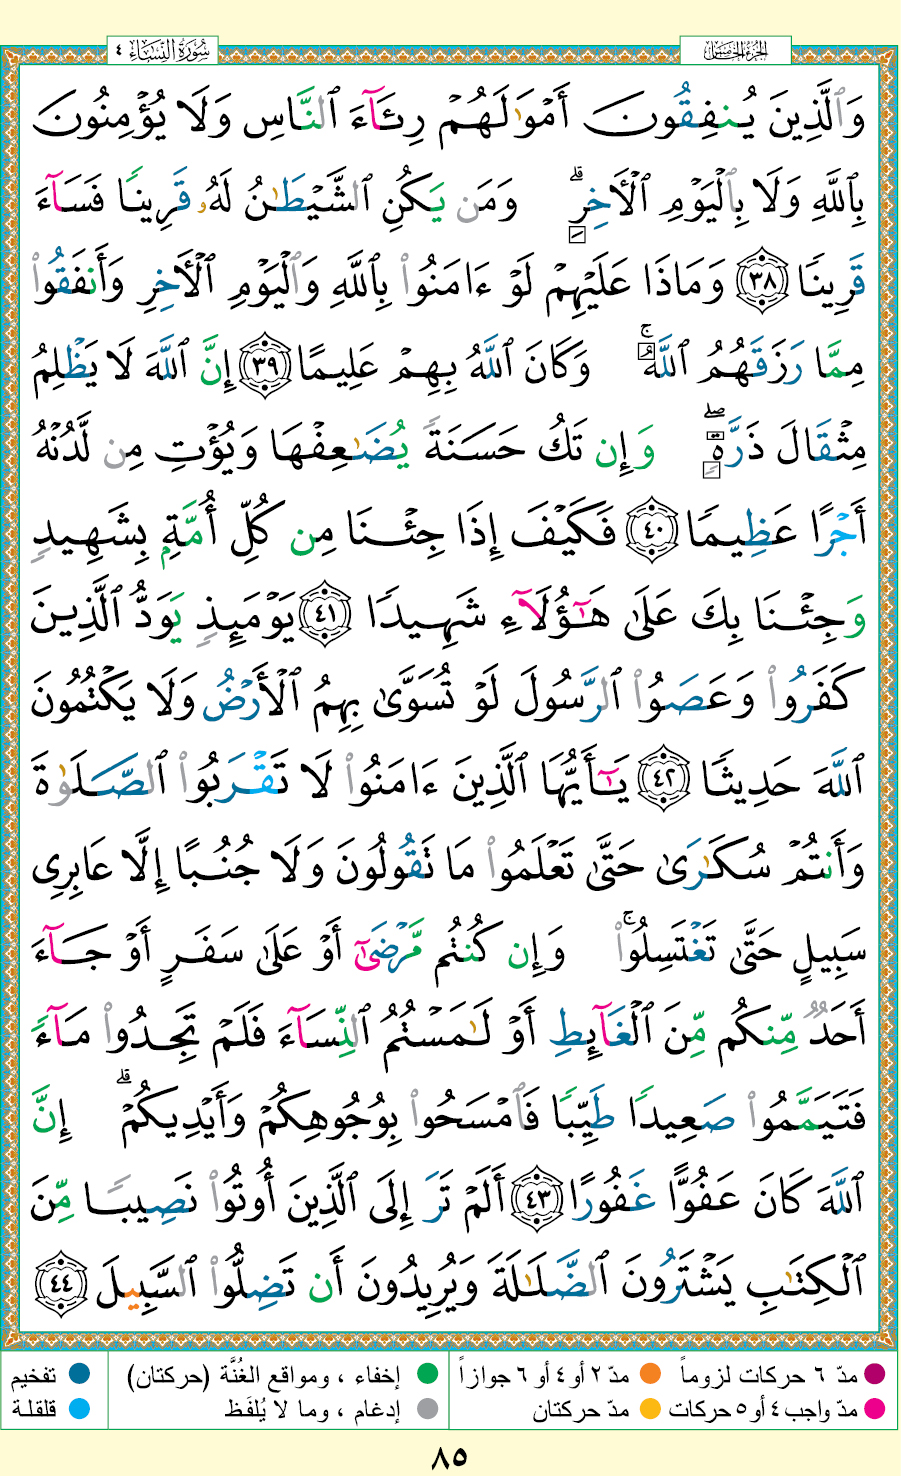 سُورَةُ النِّسَاء ٤
الجُزْءُ الخَامِسُ
وَٱلَّذِينَ يُنفِقُونَ أَمۡوَٰلَهُمۡ رِئَآءَ ٱلنَّاسِ وَلَا يُؤۡمِنُونَ
بِٱللَّهِ وَلَا بِٱلۡيَوۡمِ ٱلۡأٓخِرِۗ وَمَن يَكُنِ ٱلشَّيۡطَٰنُ لَهُۥ قَرِينٗا فَسَآءَ
قَرِينٗا ٣٨ وَمَاذَا عَلَيۡهِمۡ لَوۡ ءَامَنُواْ بِٱللَّهِ وَٱلۡيَوۡمِ ٱلۡأٓخِرِ وَأَنفَقُواْ
مِمَّا رَزَقَهُمُ ٱللَّهُۚ وَكَانَ ٱللَّهُ بِهِمۡ عَلِيمًا ٣٩ إِنَّ ٱللَّهَ لَا يَظۡلِمُ
مِثۡقَالَ ذَرَّةٖۖ وَإِن تَكُ حَسَنَةٗ يُضَٰعِفۡهَا وَيُؤۡتِ مِن لَّدُنۡهُ
أَجۡرًا عَظِيمٗا ٤٠ فَكَيۡفَ إِذَا جِئۡنَا مِن كُلِّ أُمَّةِۭ بِشَهِيدٖ
وَجِئۡنَا بِكَ عَلَىٰ هَٰٓؤُلَآءِ شَهِيدٗا ٤١ يَوۡمَئِذٖ يَوَدُّ ٱلَّذِينَ
كَفَرُواْ وَعَصَوُاْ ٱلرَّسُولَ لَوۡ تُسَوَّىٰ بِهِمُ ٱلۡأَرۡضُ وَلَا يَكۡتُمُونَ
ٱللَّهَ حَدِيثٗا ٤٢ يَٰٓأَيُّهَا ٱلَّذِينَ ءَامَنُواْ لَا تَقۡرَبُواْ ٱلصَّلَوٰةَ
وَأَنتُمۡ سُكَٰرَىٰ حَتَّىٰ تَعۡلَمُواْ مَا تَقُولُونَ وَلَا جُنُبًا إِلَّا عَابِرِي
سَبِيلٍ حَتَّىٰ تَغۡتَسِلُواْۚ وَإِن كُنتُم مَّرۡضَىٰٓ أَوۡ عَلَىٰ سَفَرٍ أَوۡ جَآءَ
أَحَدٞ مِّنكُم مِّنَ ٱلۡغَآئِطِ أَوۡ لَٰمَسۡتُمُ ٱلنِّسَآءَ فَلَمۡ تَجِدُواْ مَآءٗ
فَتَيَمَّمُواْ صَعِيدٗا طَيِّبٗا فَٱمۡسَحُواْ بِوُجُوهِكُمۡ وَأَيۡدِيكُمۡۗ إِنَّ
ٱللَّهَ كَانَ عَفُوًّا غَفُورًا ٤٣ أَلَمۡ تَرَ إِلَى ٱلَّذِينَ أُوتُواْ نَصِيبٗا مِّنَ
ٱلۡكِتَٰبِ يَشۡتَرُونَ ٱلضَّلَٰلَةَ وَيُرِيدُونَ أَن تَضِلُّواْ ٱلسَّبِيلَ ٤٤
مدّ ٦ حركات لزوماً مدّ ٢ أو ٤ أو ٦ جوازاً إخفاء ، ومواقع الغُنَّة (حركتان) تفخيم
مدّ واجب ٤ أو ٥ حركات مدّ حركتان إدغام ، وما لا يُلفَظ قلقلة
٨٥